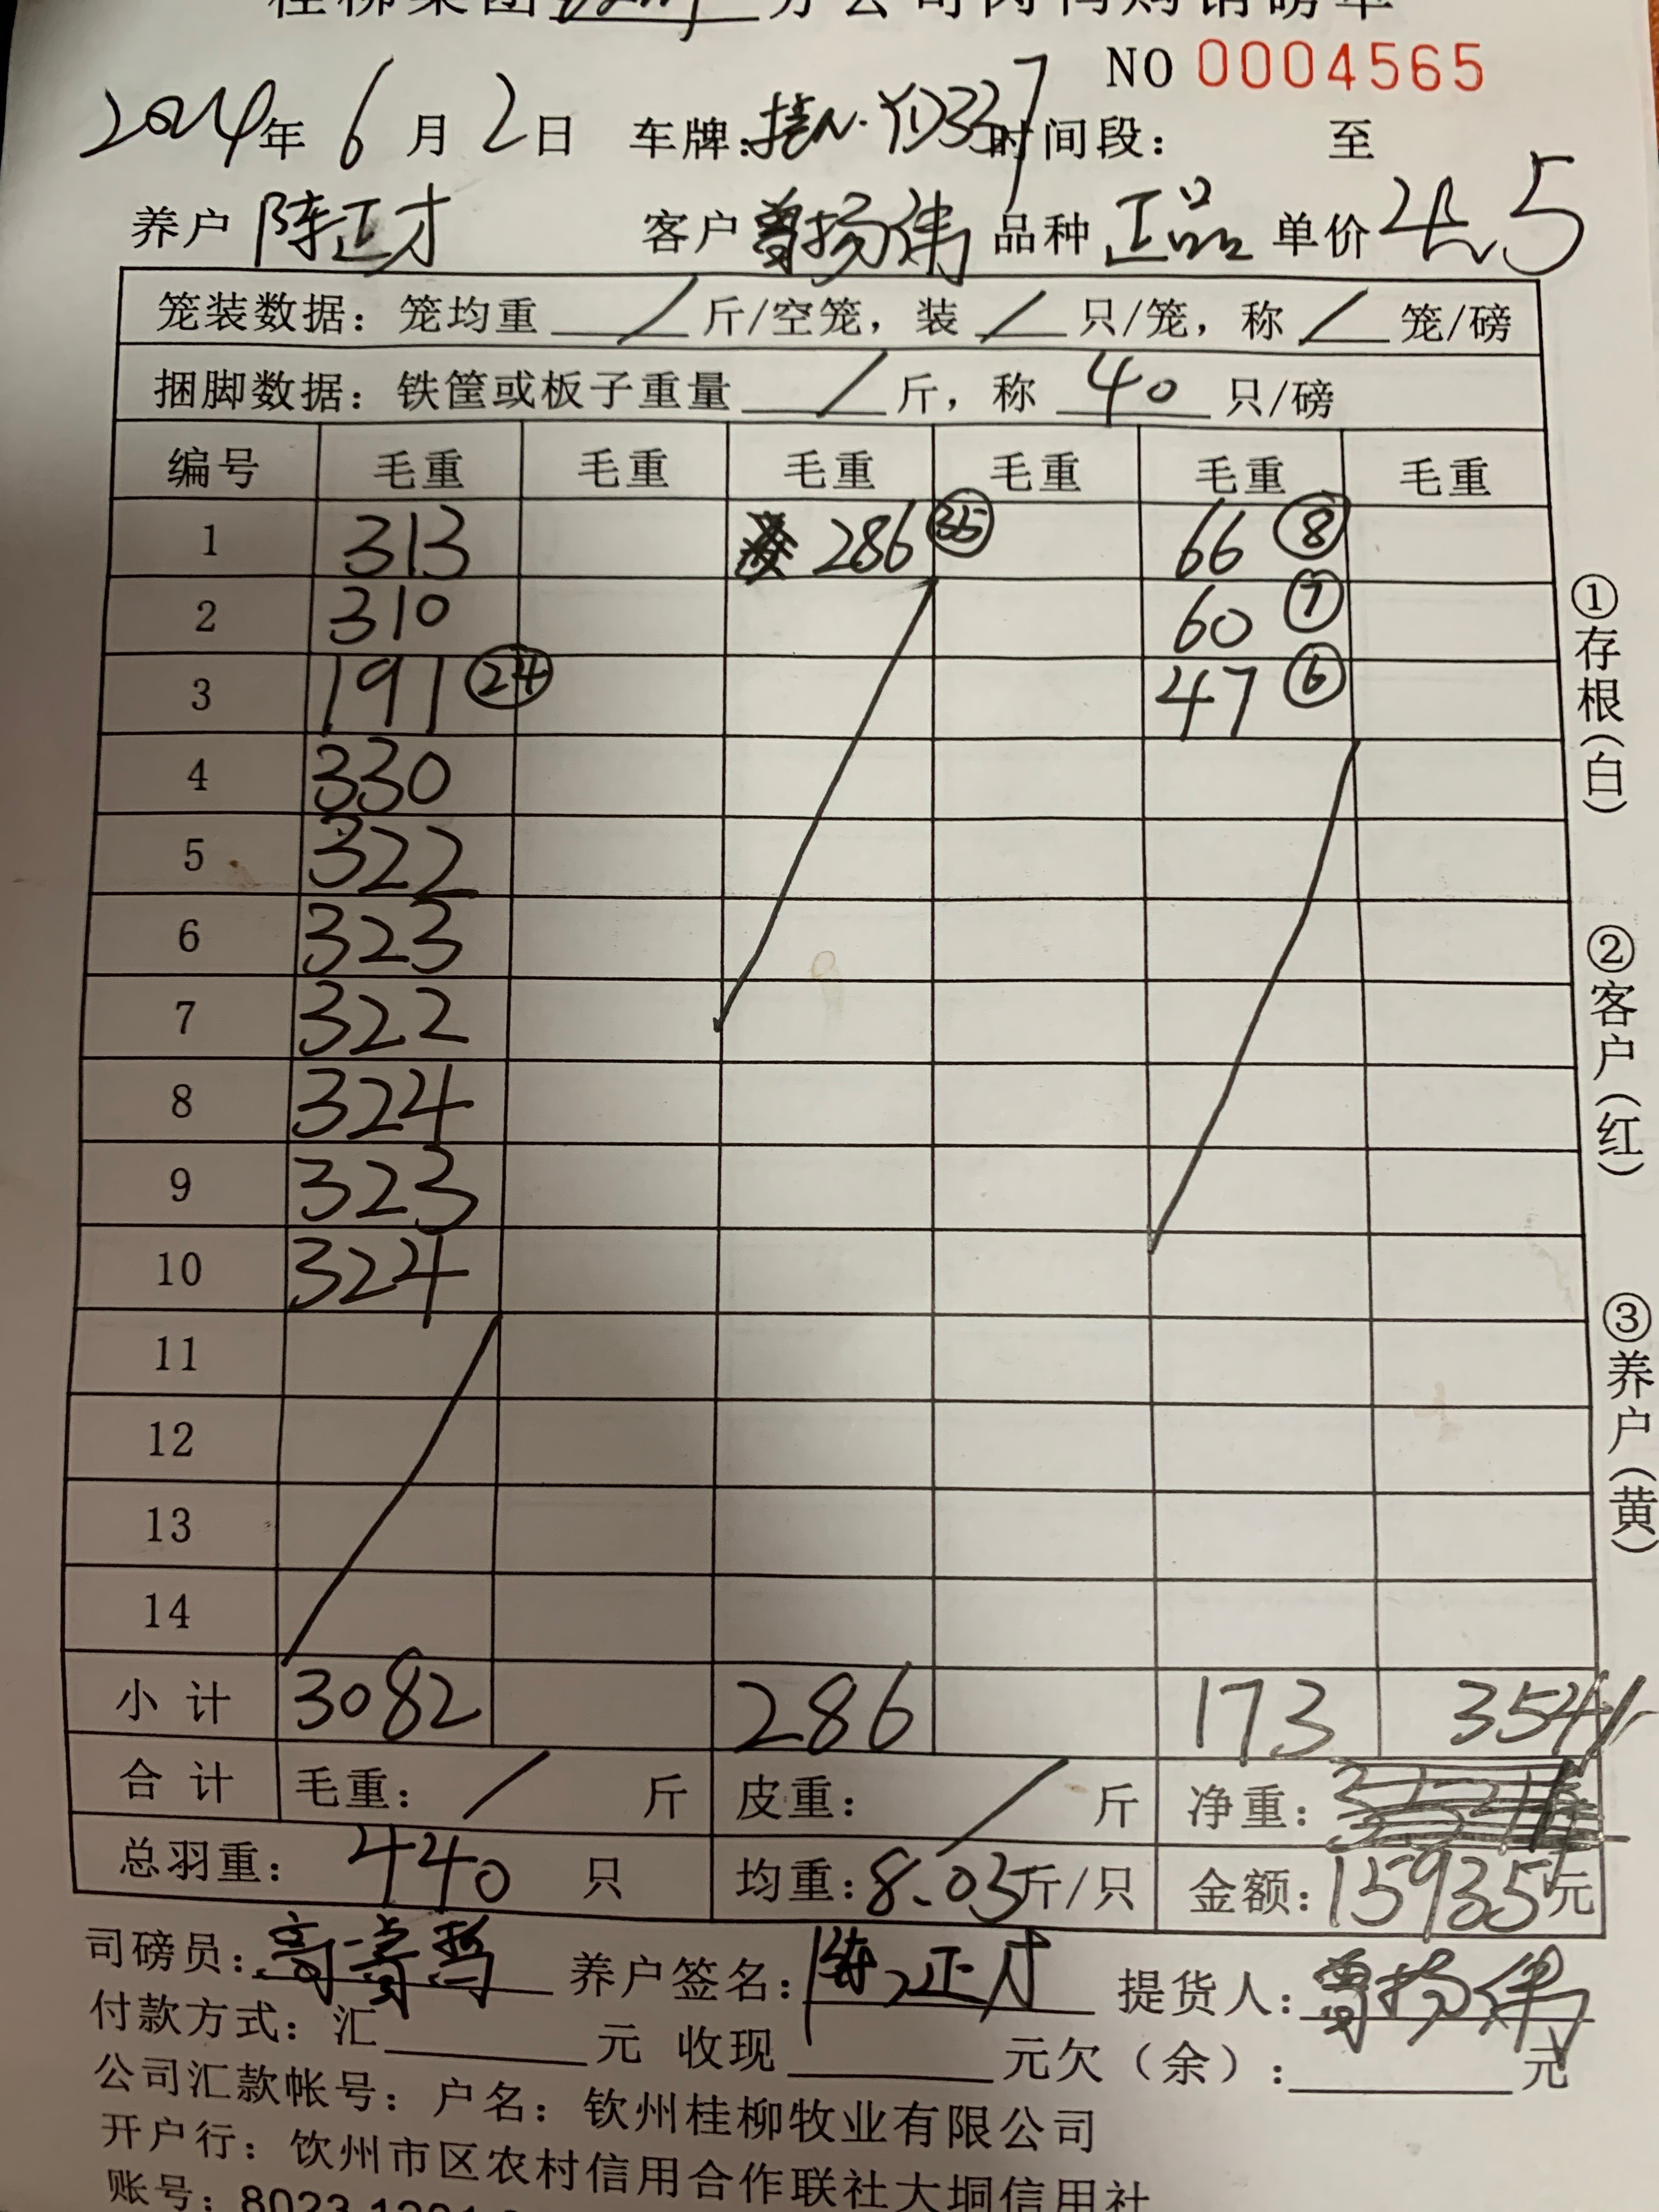 桂柳集团 分公司肉鸭购销磅单
NO 0004565
2024年 6月 2日 车牌:桂N·YD337 时间段: 至
养户 陈正才 客户 曾扬伟 品种 正品 单价 4.5
笼装数据:笼均重 / 斤/空笼,装 / 只/笼,称 / 笼/磅
捆脚数据:铁筐或板子重量 / 斤,称 40 只/磅
编号 毛重 毛重 毛重 毛重 毛重 毛重
1 313 286 ㉟ 66 ⑧
2 310 60 ⑦
3 191 ㉔ 47 ⑥
4 330
5 322
6 323
7 322
8 324
9 323
10 324
11
12
13
14
小计 3082 286 173 3541
合计 毛重: / 斤 皮重: / 斤 净重:
总羽重: 440 只 均重:8.05斤/只 金额:15935元
司磅员: 养户签名:陈正才 提货人:曾扬伟
付款方式:汇 元 收现 元欠(余): 元
公司汇款帐号:户名:钦州桂柳牧业有限公司
开户行:钦州市区农村信用合作联社大垌信用社
账号:8023
①存根(白)
②客户(红)
③养户(黄)